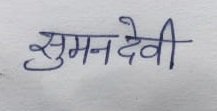 सुमन देवी